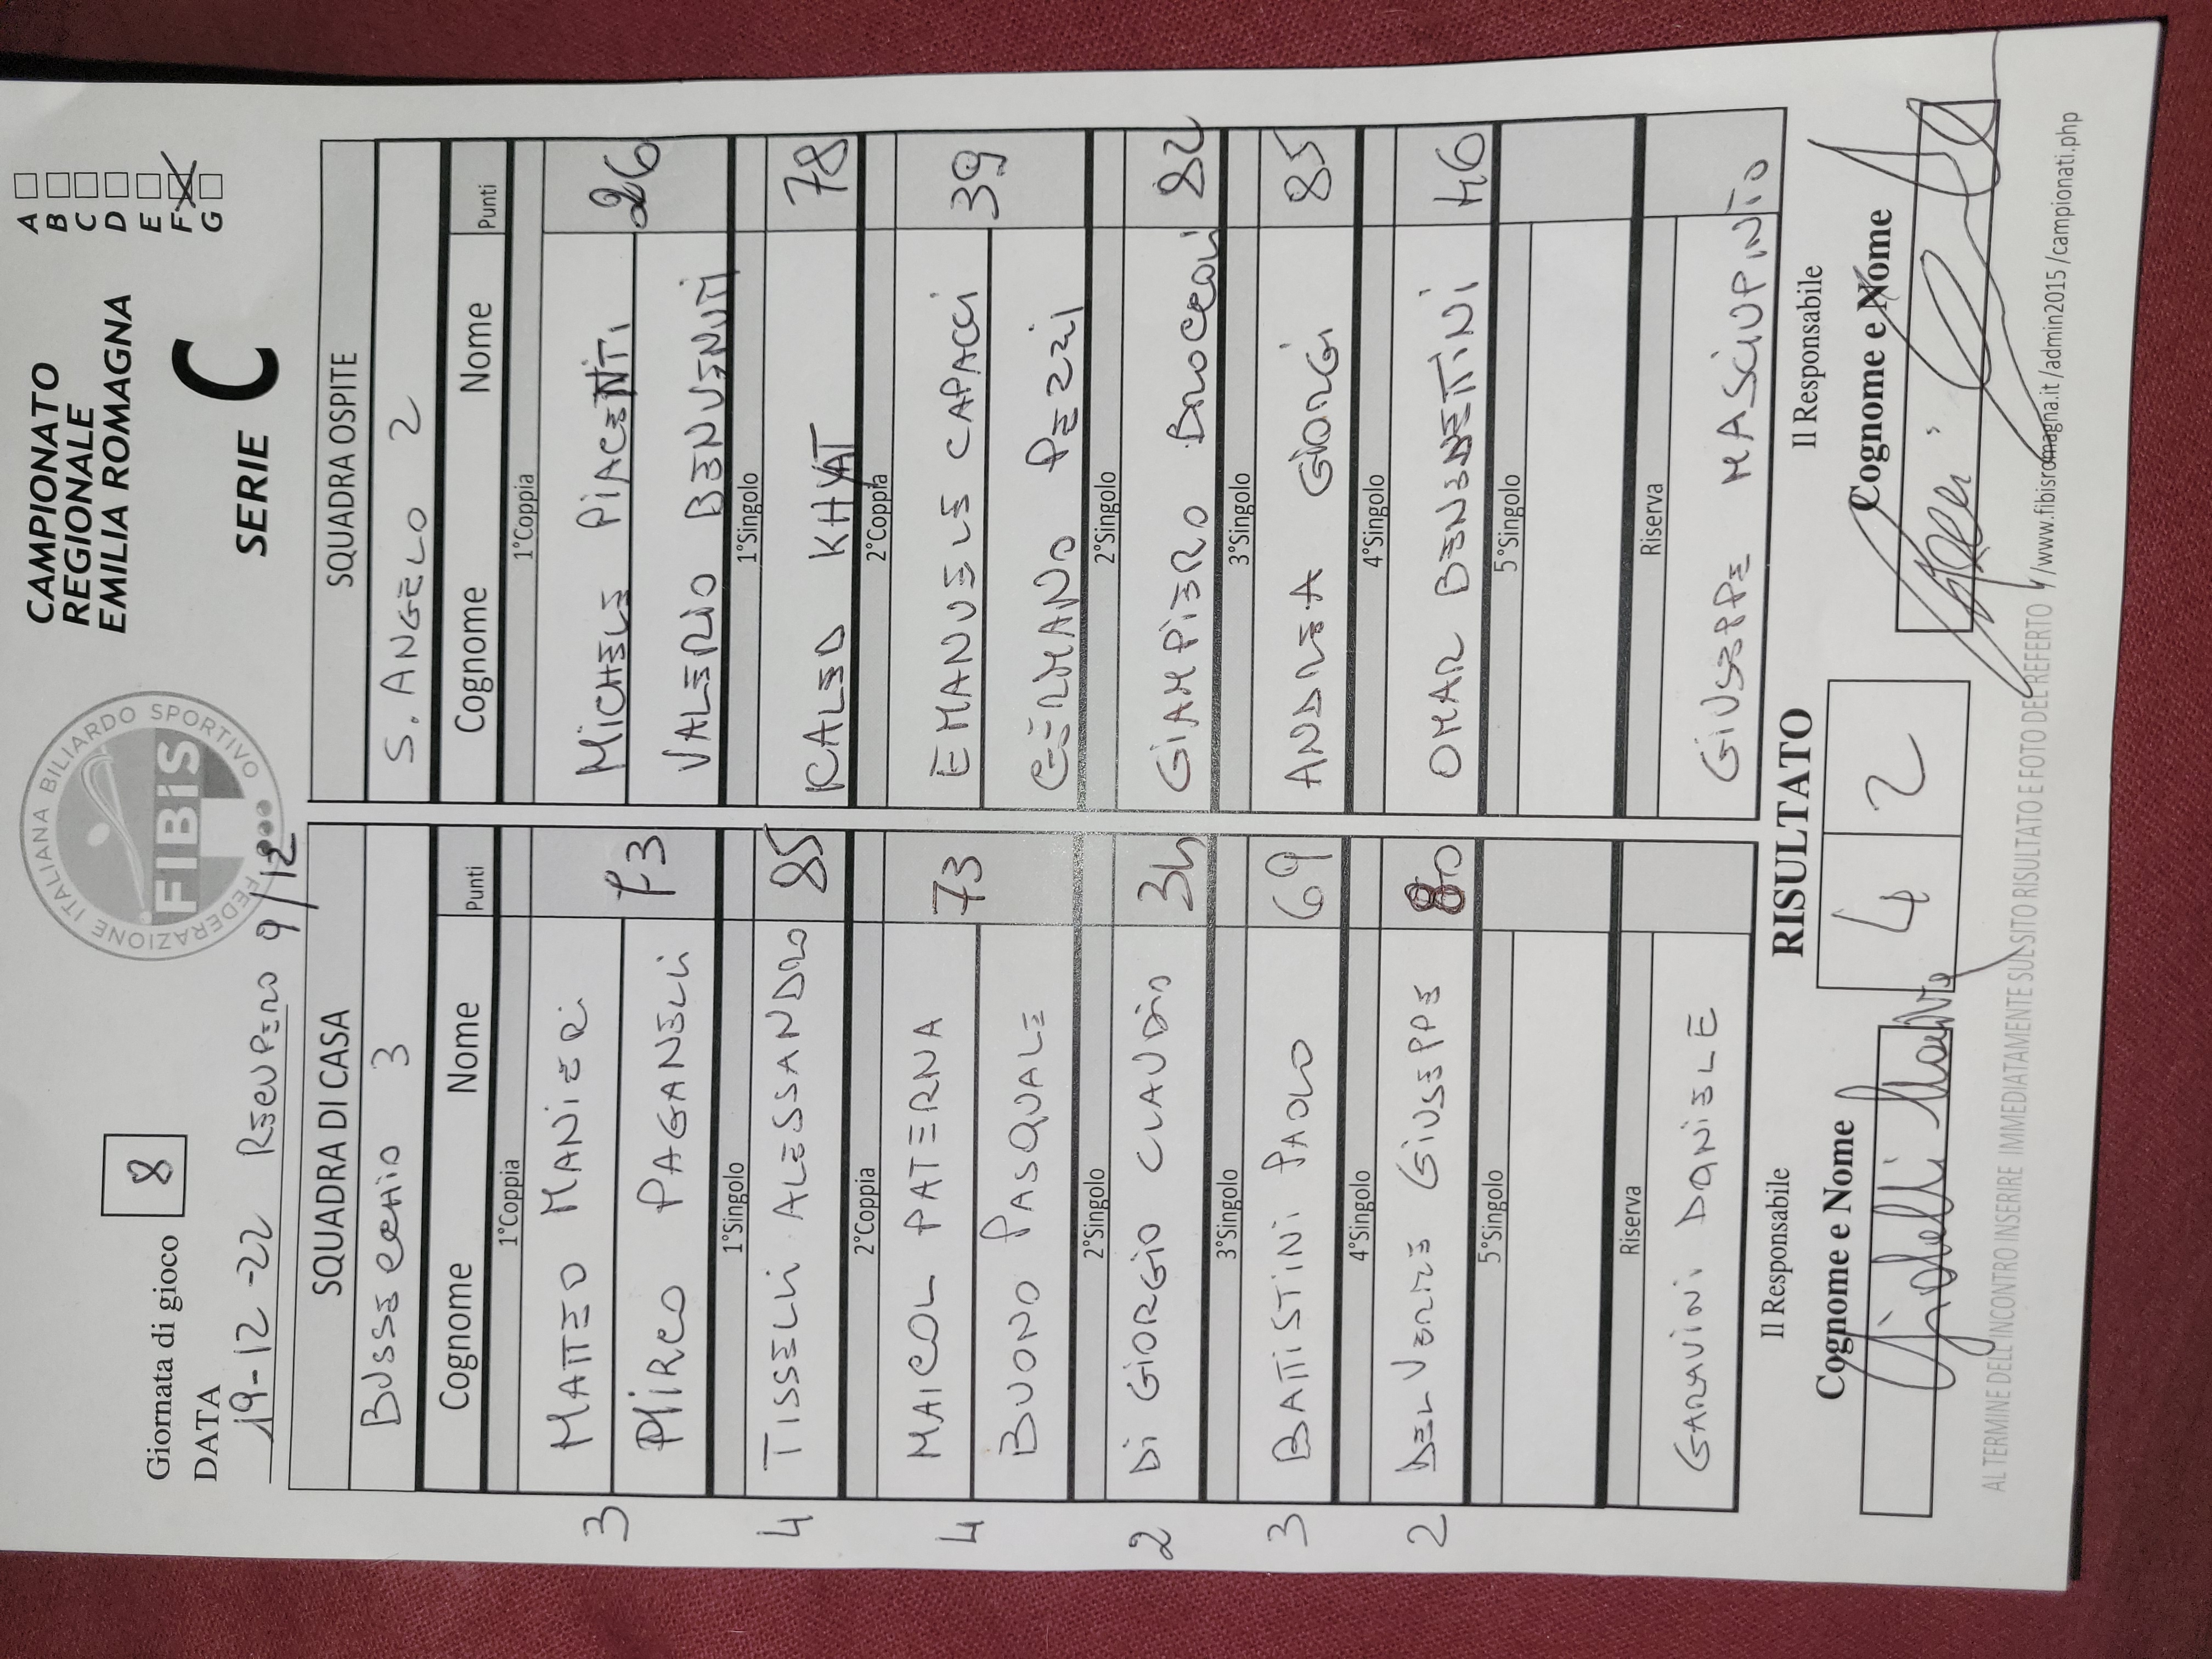 Giornata di gioco 8
DATA
19-12-22 RECUPERO 9/12
FEDERAZIONE ITALIANA BILIARDO SPORTIVO
FIBiS
CAMPIONATO
REGIONALE
EMILIA ROMAGNA
SERIE C
A
B
C
D
E
F
G
SQUADRA DI CASA
BUSSECCHIO 3
Cognome Nome Punti
1°Coppia
3 MATTEO MANIERI
MIRCO PAGANELLI 73
1°Singolo
4 TISSELLI ALESSANDRO 85
2°Coppia
4 MAICOL PATERNA 73
BUONO PASQUALE
2°Singolo
2 Di GIORGIO CLAUDIO 34
3°Singolo
3 BATTISTINI PAOLO 69
4°Singolo
2 DEL VERME GIUSEPPE 80
5°Singolo
Riserva
GARAVINI DANIELE
SQUADRA OSPITE
S. ANGELO 2
Cognome Nome Punti
1°Coppia
MICHELE PIACENTI 26
VALERIO BENVENUTI
1°Singolo
KALED KHYAT 78
2°Coppia
EMANUELE CAPACCI 39
GERMANO PEZZI
2°Singolo
GIAMPIERO BROCCOLI 82
3°Singolo
ANDREA GIORGI 85
4°Singolo
OMAR BENEDETTINI 46
5°Singolo
Riserva
GIUSEPPE MASCIUPINTO
Il Responsabile
Cognome e Nome
RISULTATO
4 2
Il Responsabile
Cognome e Nome
AL TERMINE DELL'INCONTRO INSERIRE IMMEDIATAMENTE SUL SITO RISULTATO E FOTO DEL REFERTO //www.fibisromagna.it/admin2015/campionati.php